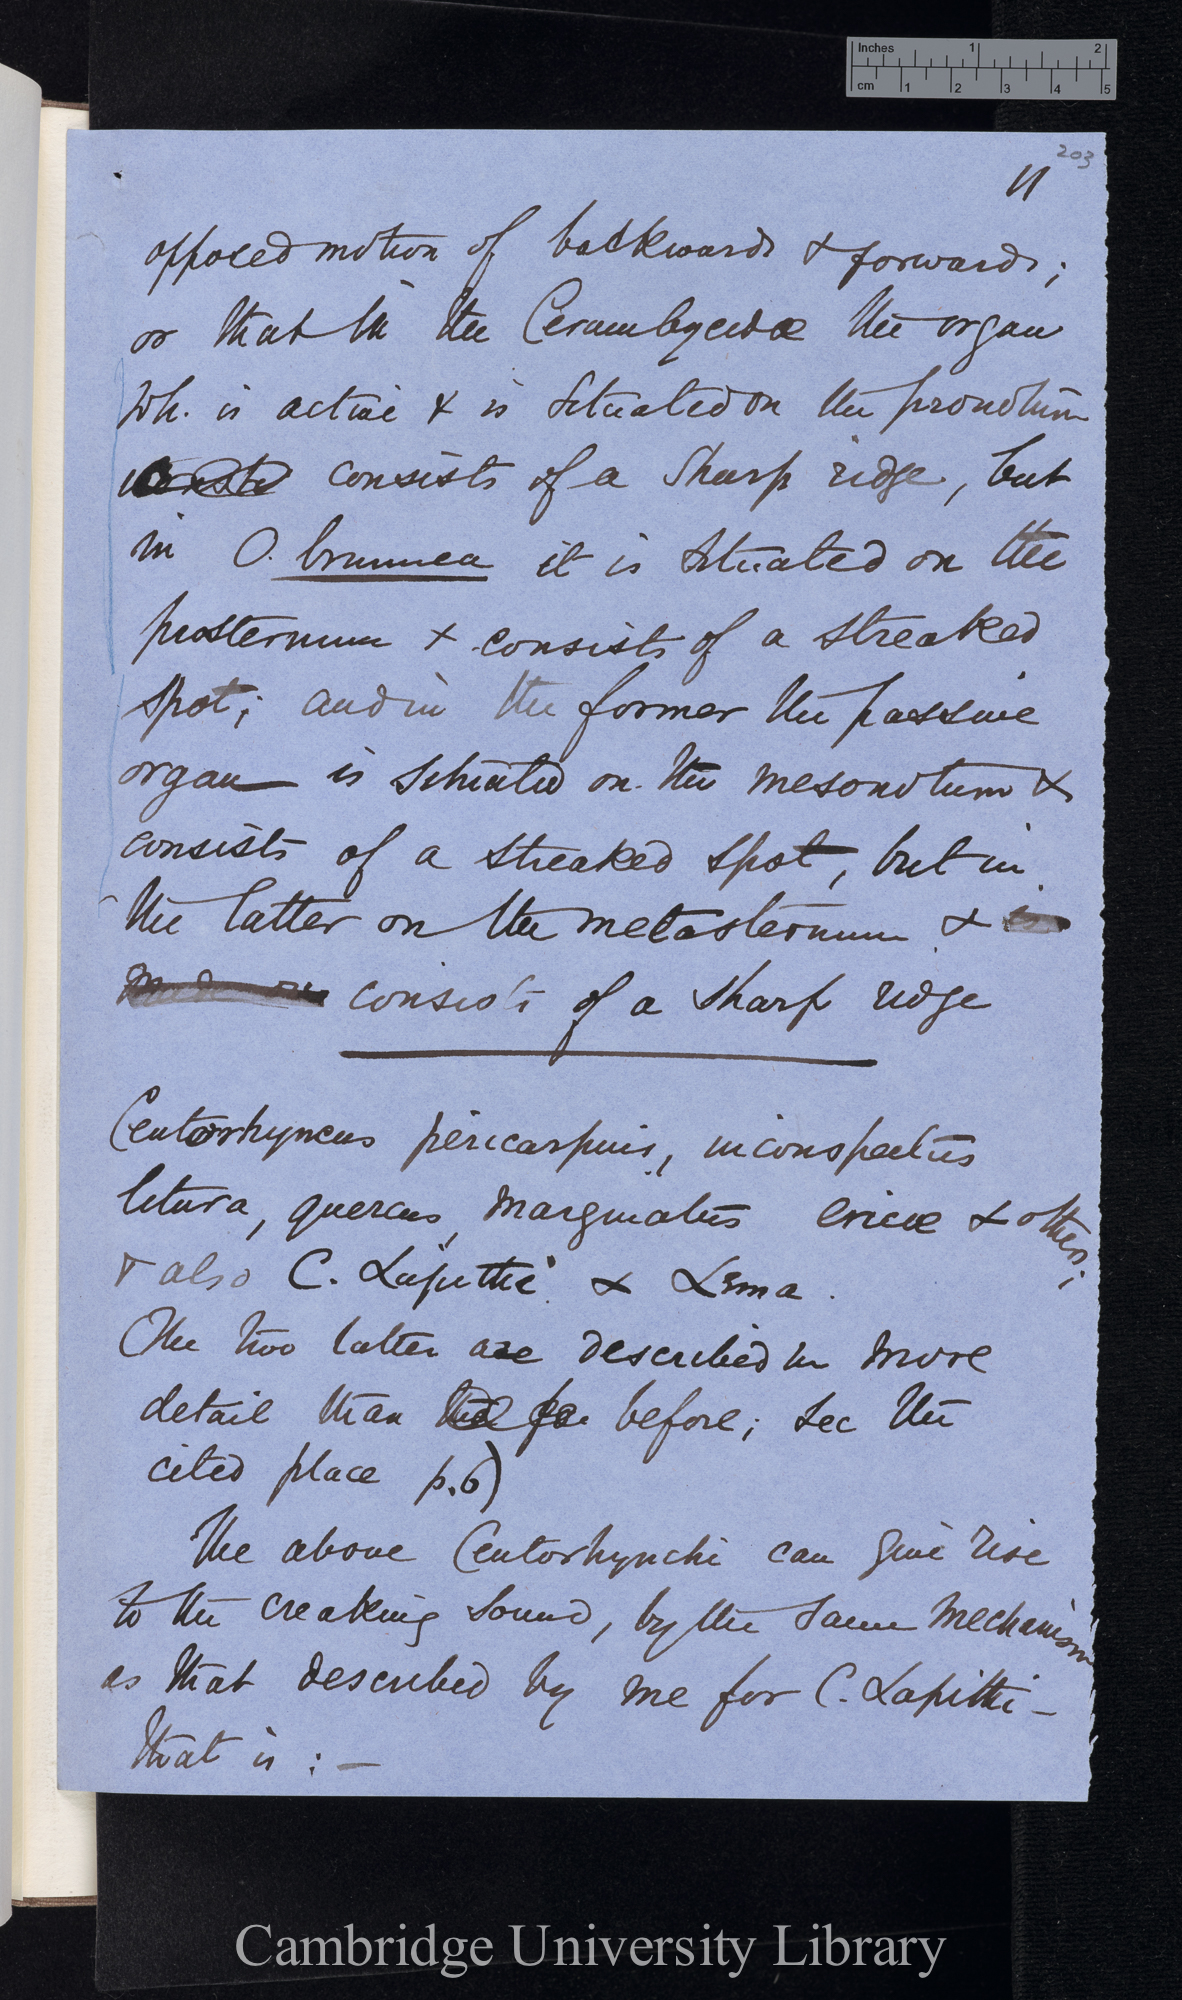 Inches 1 2
cm 1 2 3 4 5
203
11
opposed motion of backwards & forwards;
or that in the Cerambycidæ the organ
wh. is active & is situated on the pronotum
consists of a sharp ridge, but
in O. brunnea it is situated on the
prosternum & consists of a streaked
spot; and in the former the passive
organ is situated on the mesonotum &
consists of a streaked spot, but in
the latter on the metasternum & is
made on consists of a sharp ridge
Ceutorhyncus pericarpius, inconspectus
litura, quercus, marginatus ericæ & others;
& also C. Lapithi & Lema.
The two latter are described in more
detail than before; see the
cited place p. 6)
The above Ceutorhynchi can give rise
to the creaking sound, by the same mechanism
as that described by me for C. Lapitthi —
that is : —
Cambridge University Library